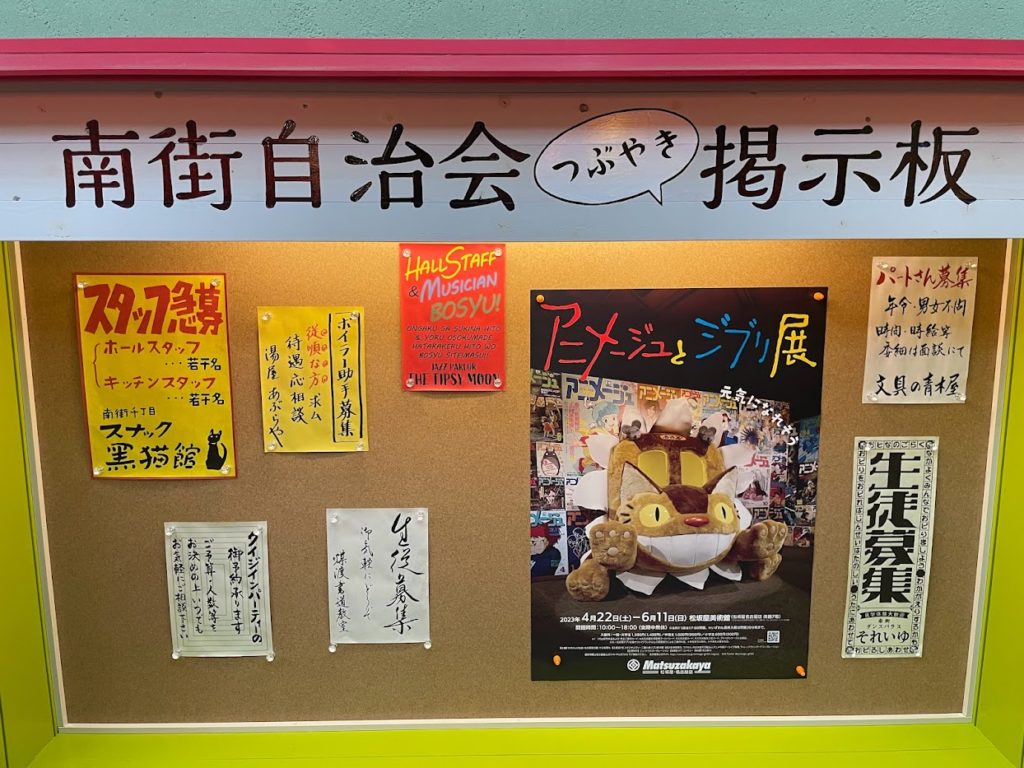 南街自治会
つぶやき
掲示板
スタッフ急募
ホールスタッフ
…若干名
キッチンスタッフ
…若干名
南街千丁目
スナック
黒猫館
ボイラー助手募集
従順な方求ム
待遇応相談
湯屋 あぶらや
HALL STAFF
& MUSICIAN
BOSYU!
ONGAKU GA SUKINA HITO
& YORU OSOKUMADE
HATARAKERU HITO WO
BOSYU SITEMASU!!
JAZZ PARLOR
THE TIPSY MOON
アニメージュとジブリ展
元気になれそう
2023年4月22日(土)-6月11日(日) 松坂屋美術館
開館時間:10:00~18:00
Matsuzakaya
パートさん募集
年令・男女不問
時間・時給等
委細は面談にて
文具の青木屋
クイジインパーティーの
御予約承ります
ご予算・人数等も
お決めの上いつでも
お気軽にご相談下さい
生徒募集
お気軽にどうぞ
書道教室
生徒募集
ダンスパラス
それいゆ